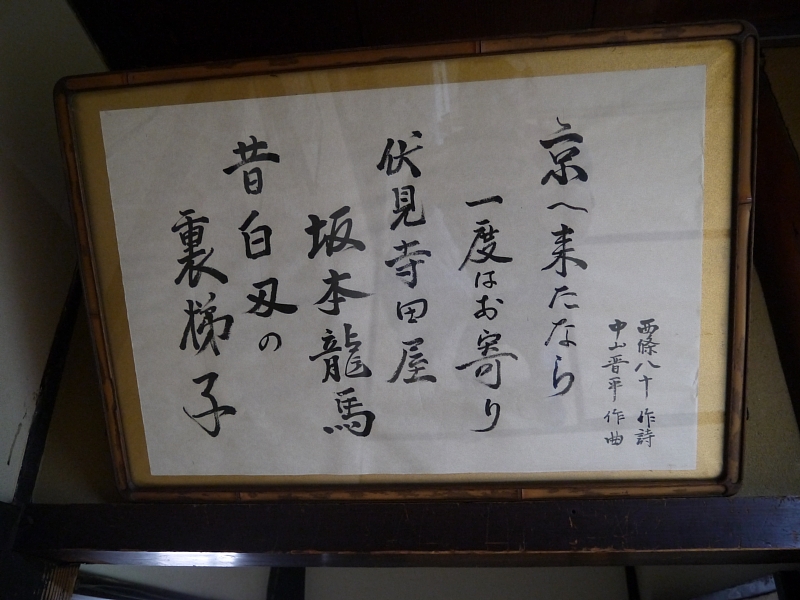 西條八十 作詩
中山晋平 作曲
京へ来たなら
一度はお寄り
伏見寺田屋
坂本龍馬
昔白刃の
裏梯子